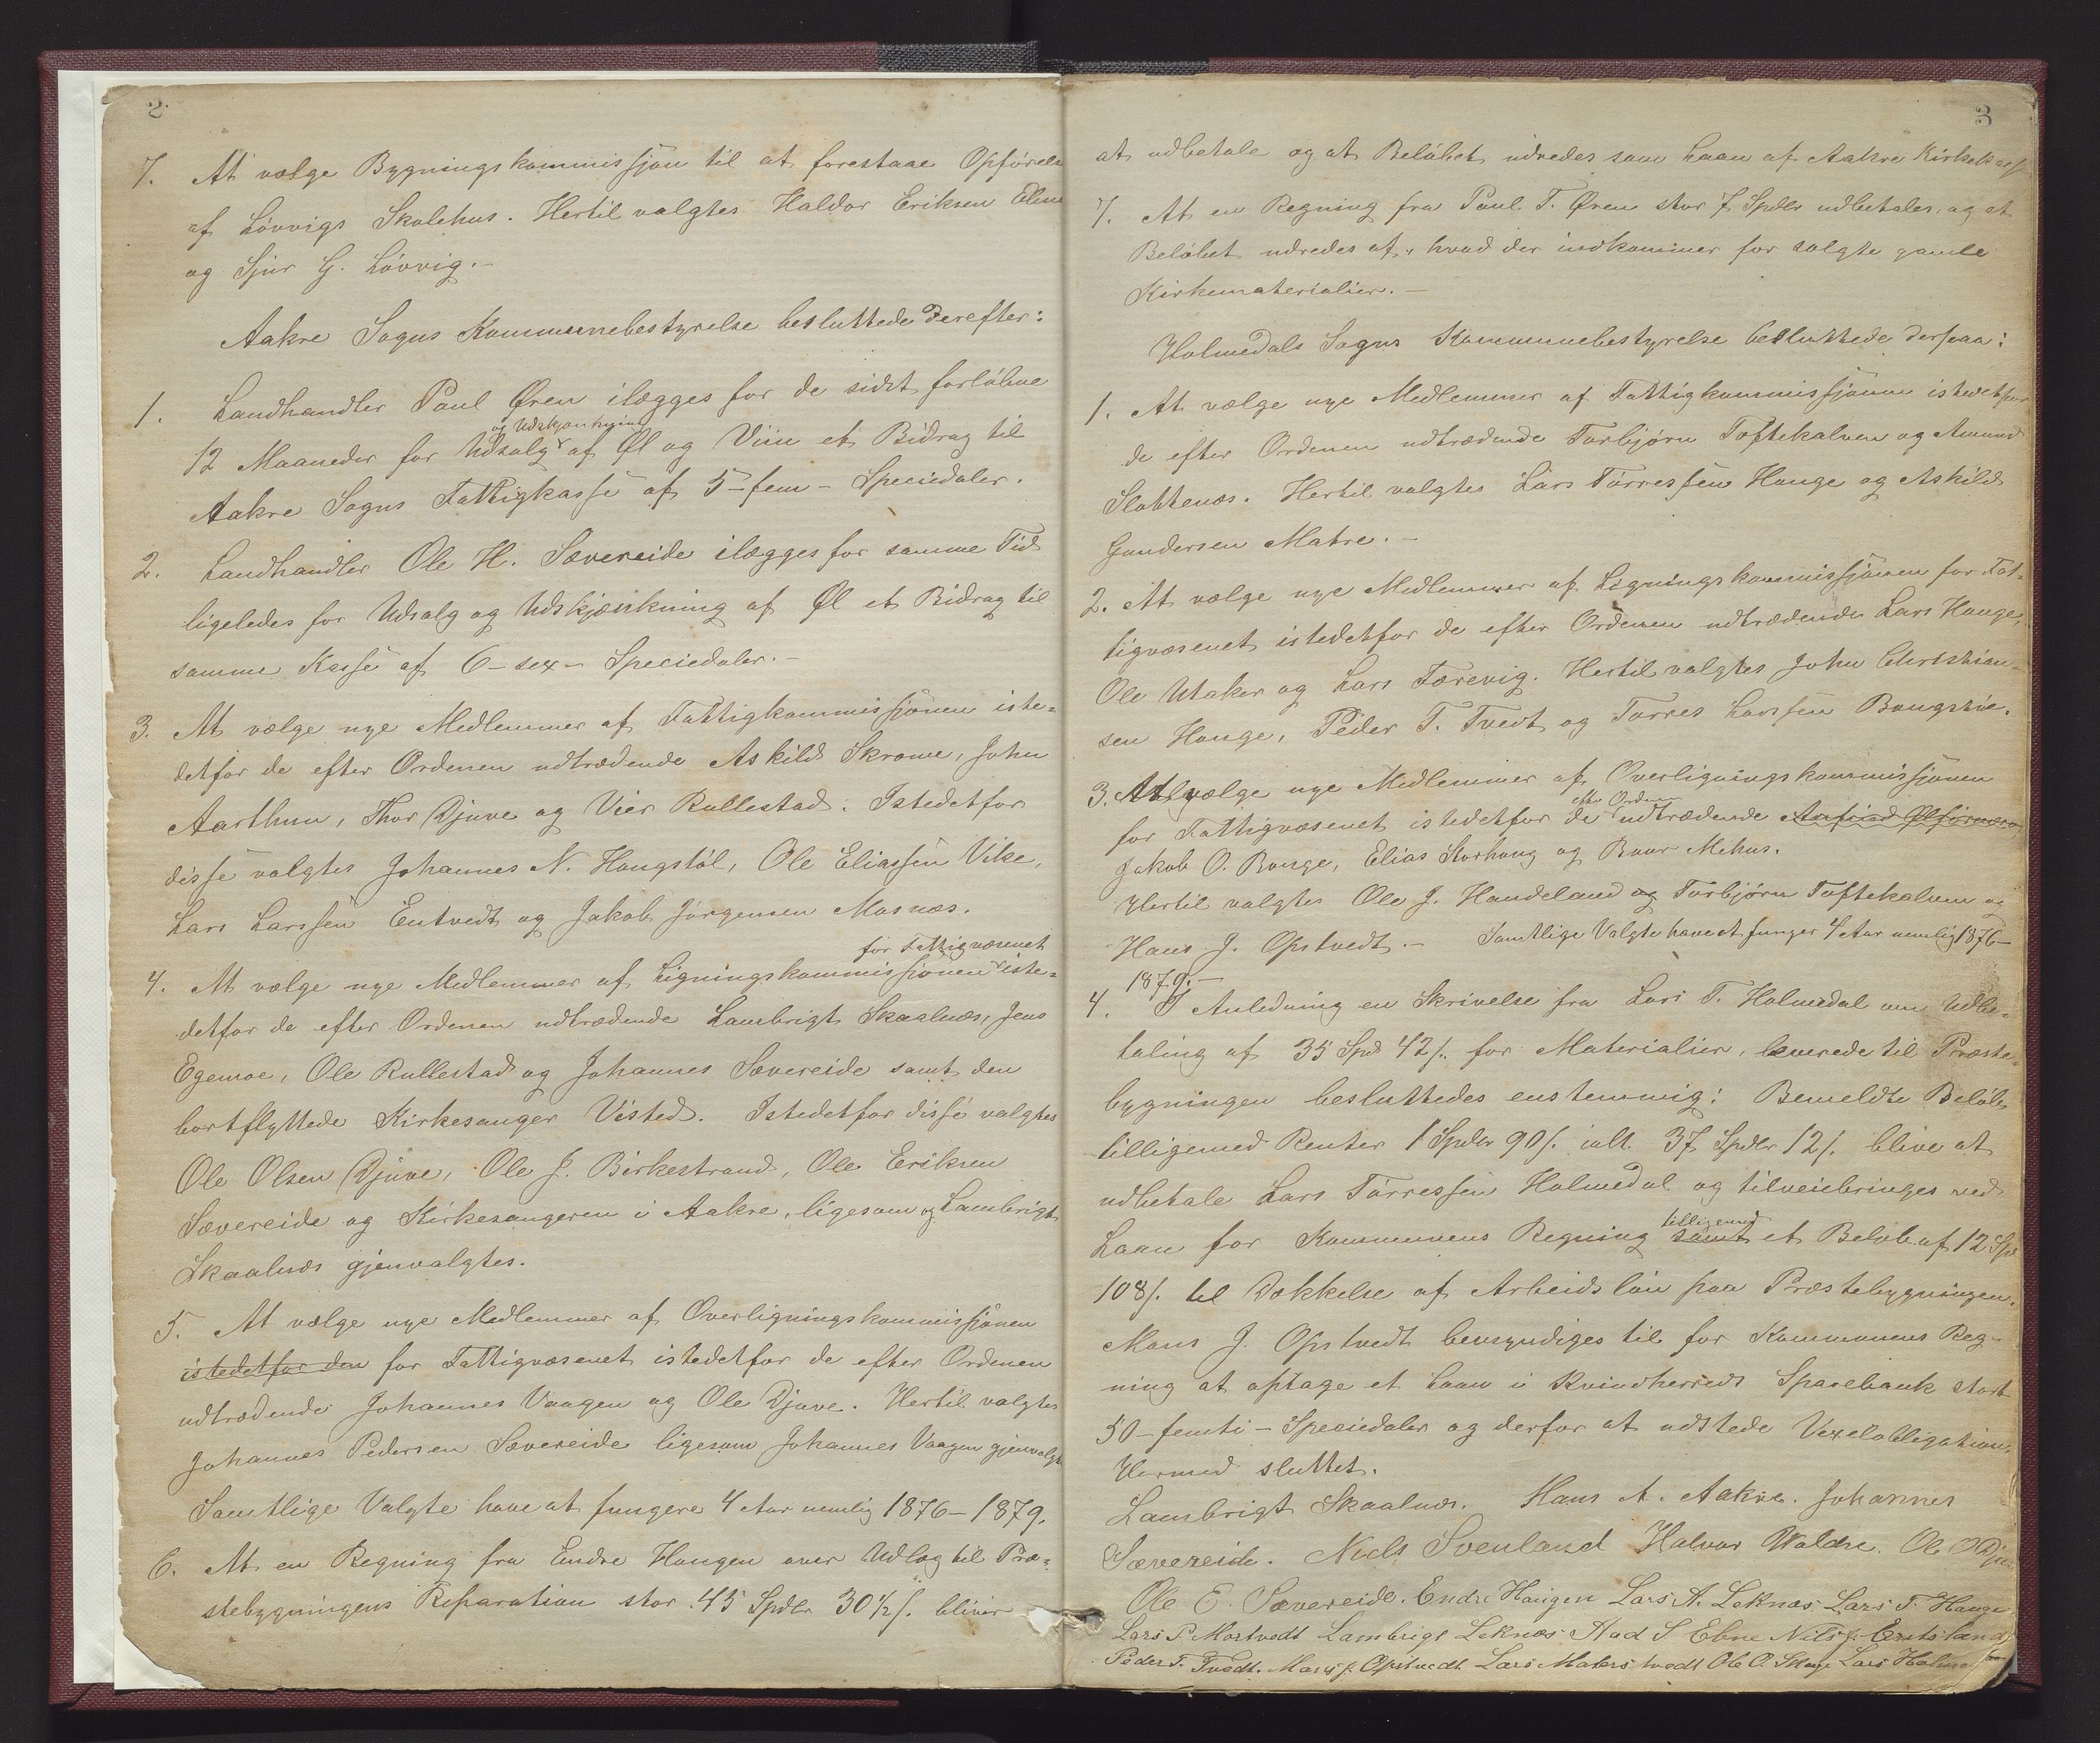 2
7. At vælge Bygningskommissjon til at forestaae Opførels
af Løvvigs Skolehus. Hertil valgtes Haldor Eriksen Ebne
og Sjur G. Løvvig.-
Aakre Sogns Kommunebestyrelse besluttede derefter:
1. Landhandler Poul Øren ilægges for de sidst forløbne
og Udskjænkning
12 Maaneder for Udsalg af Øl og Viin et Bidrag til
Aakre Sogns Fattigkasse af 5-fem- Speciedaler.
2. Landhandler Ole H. Sævereide ilægges for samme Tid
ligeledes for Udsalg og Udskjænkning af Øl et Bidrag til
samme Kasse af 6-sex- Speciedaler.-
3. At vælge nye Medlemmer af Fattigkommissjonen iste-
detfor de efter Ordenen udtrædende Askild Skrome, John
Aarthun, Thor Djuve og Vier Rullestad. Istedetfor
disse valgtes Johannes N. Hougstøl, Ole Eliassen Vike,
Lars Larssen Entvedt og Jakob Jørgensen Mosnæs.
for Fattigvæsenet
4. At vælge nye Medlemmer af Ligningskommissjonen iste-
detfor de efter Ordenen udtrædende Lambrigt Skaalnæs, Jens
Egemoe, Ole Rullestad og Johannes Sævereide samt den
bortflyttede Kirkesanger Visted. Istedetfor disse valgtes
Ole Olsen Djuve, Ole J. Birkestrand, Ole Eriksen
Sævereide og Kirkesangeren i Aakre, ligesom og Lambrigt
Skaalnæs gjenvalgtes.
5. At vælge nye Medlemmer af Overligningskommissjonen
istedetfor den for Fattigvæsenet istedetfor de efter Ordenen
udtrædende Johannes Vaagen og Ole Djuve. Hertil valgtes
Johannes Pedersen Sævereide ligesom Johannes Vaagen gjenvalgt
Samtlige Valgte have at fungere 4 Aar nemlig 1876-1879.
6. At en Regning fra Endre Haugen over Udlæg til Præ-
stebygningens Reparation stor 45 Spdlr 30½ s. bliver
3
at udbetale og at Beløbet udredes som Laan af Aakre Kirkekasse
7. At en Regning fra Poul T. Øren stor 7 Spdlr udbetales, og at
Beløbet udredes af, hvad der indkommer for solgte gamle
Kirkematerialier.-
Holmedals Sogns Kommunebestyrelse besluttede derpaa:
1. At vælge nye Medlemmer af Fattigkommissjonen istedetfor
de efter Ordenen udtrædende Torbjørn Toftekalven og Amund
Slottenæs. Hertil valgtes Lars Tørressen Hauge og Askild
Gundersen Matre.-
2. At vælge nye Medlemmer af Ligningskommissjonen for Fat-
tigvæsenet istedetfor de efter Ordenen udtrædende Lars Hauge,
Ole Utaker og Lars Tærevig. Hertil valgtes John Christian-
sen Hauge, Peder T. Tvedt og Tørres Larssen Bougstøe.
3. At vælge nye Medlemmer af Overligningskommissjonen
efter Ordenen
for Fattigvæsenet istedetfor de udtrædende Anfind Ølfernæs og
Jakob O. Bouge, Elias Storhoug og Baar Mehus.
Hertil valgtes Ole J. Handeland og Torbjørn Toftekalven og
Hans J. Opstvedt.- Samtlige Valgte have at funger 4 Aar nemlig 1876-
1879.-
4. I Anledning en Skrivelse fra Lars T. Holmedal om Udbe-
taling af 35 Spd 42 s. for Materialier, leverede til Præste-
bygningen besluttedes enstemmig: Bemeldte Beløb
tilligemed Renter 1 Spdlr 90 s. ialt 37 Spdlr 12 s. blive at
udbetale Lars Tørressen Holmedal og tilveiebringes ved
tilligemed
Laan for Kommunens Regning samt et Beløb af 12 Spd
108 s. til Dækkelse af Arbeidsløn paa Præstebygningen.
Mons J. Opstvedt bemyndiges til for Kommunens Reg-
ning at optage et Laan i Kvindherreds Sparebank stort
50-femti-Speciedaler og derfor at udstede Vexelobligation.
Hermed sluttet.
Lambrigt Skaalnæs. Hans A. Aakre. Johannes
Sævereide. Niels Svenland Halvor Waldre. Ole O Djuv
Ole E. Sævereide. Endre Haugen Lars A. Leknæs Lars T. Hauge
Lars P Mortvedt Lambrigt Leknæs Aad S Ebne Nils J.
Peder T. Tvedt. Mons J. Opstvedt Lars Matrs tvedt Ole O. Lars Holme